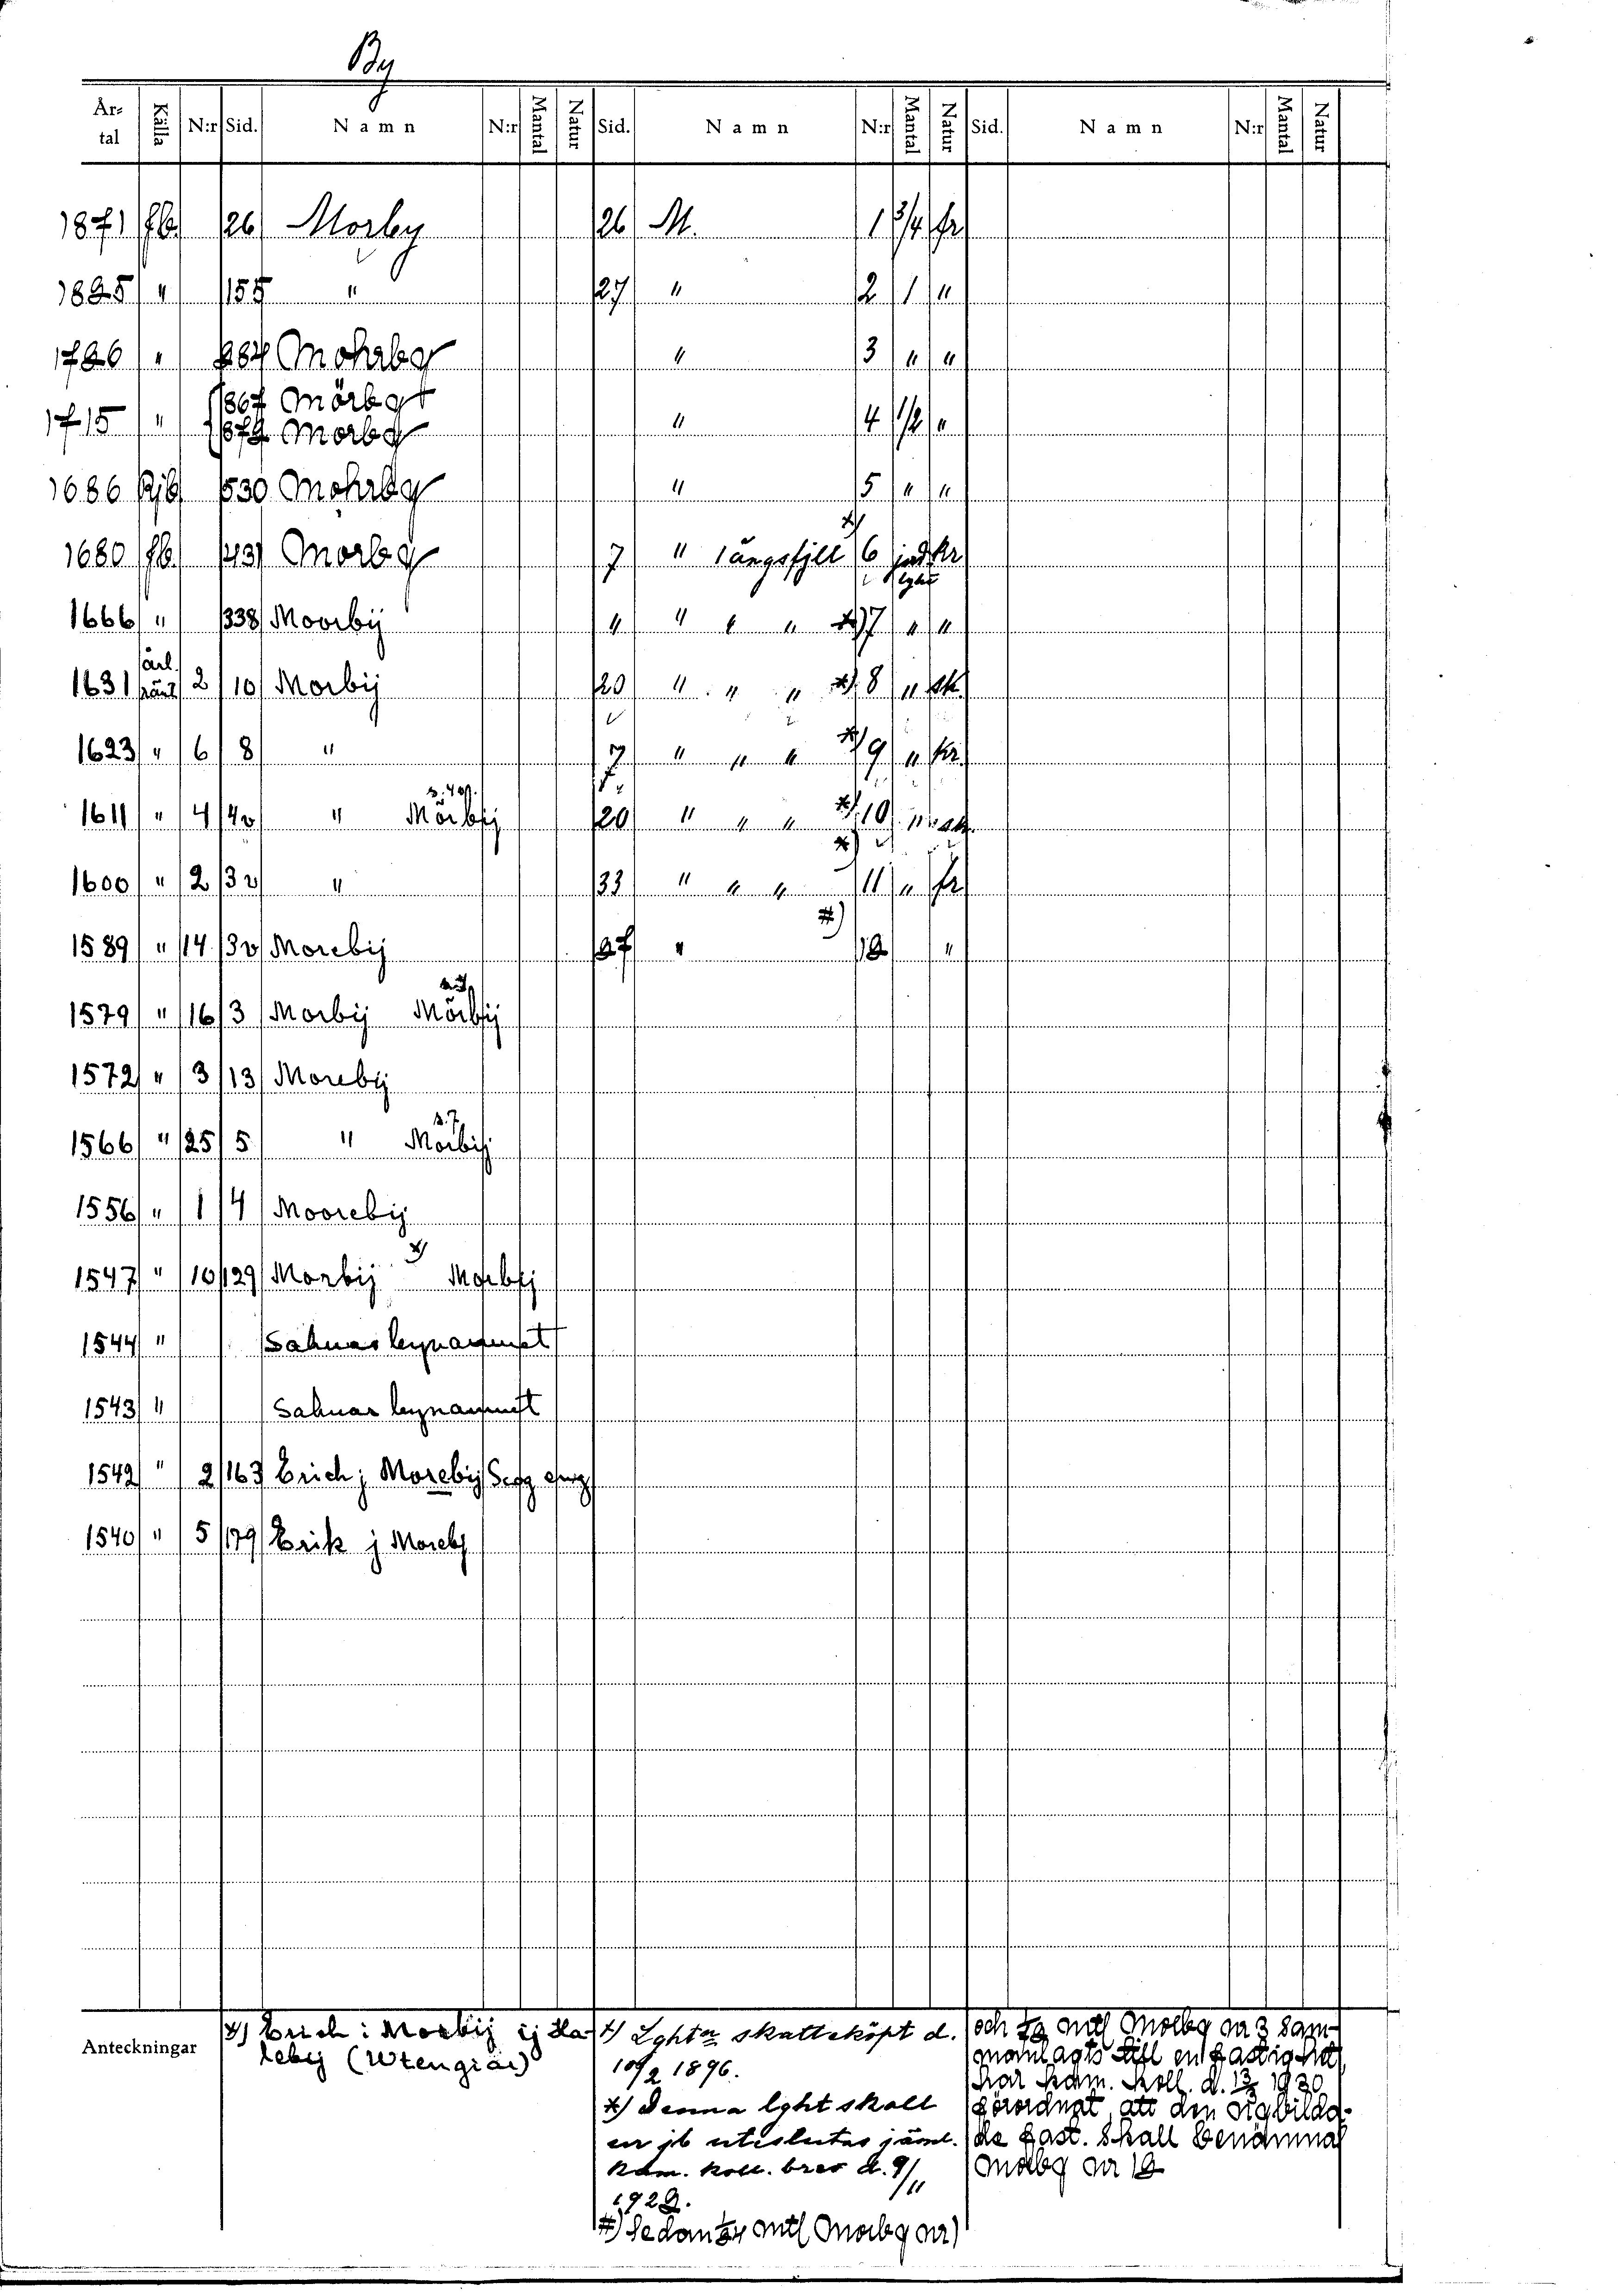 By
År-tal Källa N:r Sid. Namn N:r Mantal Natur Sid. Namn N:r Mantal Natur Sid. Namn N:r Mantal Natur
1871 Jb. 26 Morby 26 M. 1 3/4 fr
1825 " 155 " 27 " 2 1 "
1726 " 887 Mohrby " 3 " "
1715 " 867 Mörby
879 Morby " 4 1/2 "
1686 Rjb 530 Mohrby " 5 " "
1680 Jb. 431 Morby 7 " Långsfjell x) 6 jord kr
lght
1666 " 338 Moorbij " " " " x) 7 " "
1631 årl. ränt. 2 10 Morbij 20 " " " x) 8 " sk.
1623 " 6 8 " 7 " " " x) 9 " kr.
1611 " 4 4v " s. 40 Mörbij 20 " " " x) 10 " sk.
1600 " 2 3v " 33 " " " x) 11 " fr
1589 " 14 3v Morebij 27 " #) 12 "
1579 " 16 3 Morbij Mörbij
1572 " 3 13 Morebij
1566 " 25 5 " s. 7 Morbij
1556 " 1 4 Moorebij
1547 " 10 129 Morbij x) Morbij
1544 " Saknas bynamnet
1543 " Saknar bynamnet
1542 " 2 163 Erich j Morebij
1540 " 5 179 Erik j Moreby
Anteckningar
x) Erich i Morbij ij Ha-
leby (Utengiär)
x) Lght:n skatteköpt d.
10/2 1896.
x) Denna lght skall
ur jb uteslutas jäml.
Kam. koll. brev d. 9/11
1929.
#) Sedan mtl Morby nr 2
och mtl Morby nr 3 sam-
manlagts till en fastighet
har Kam. Koll. d. 1930
förordnat att den nybilda-
de fast. skall benämnas
Morby nr 12